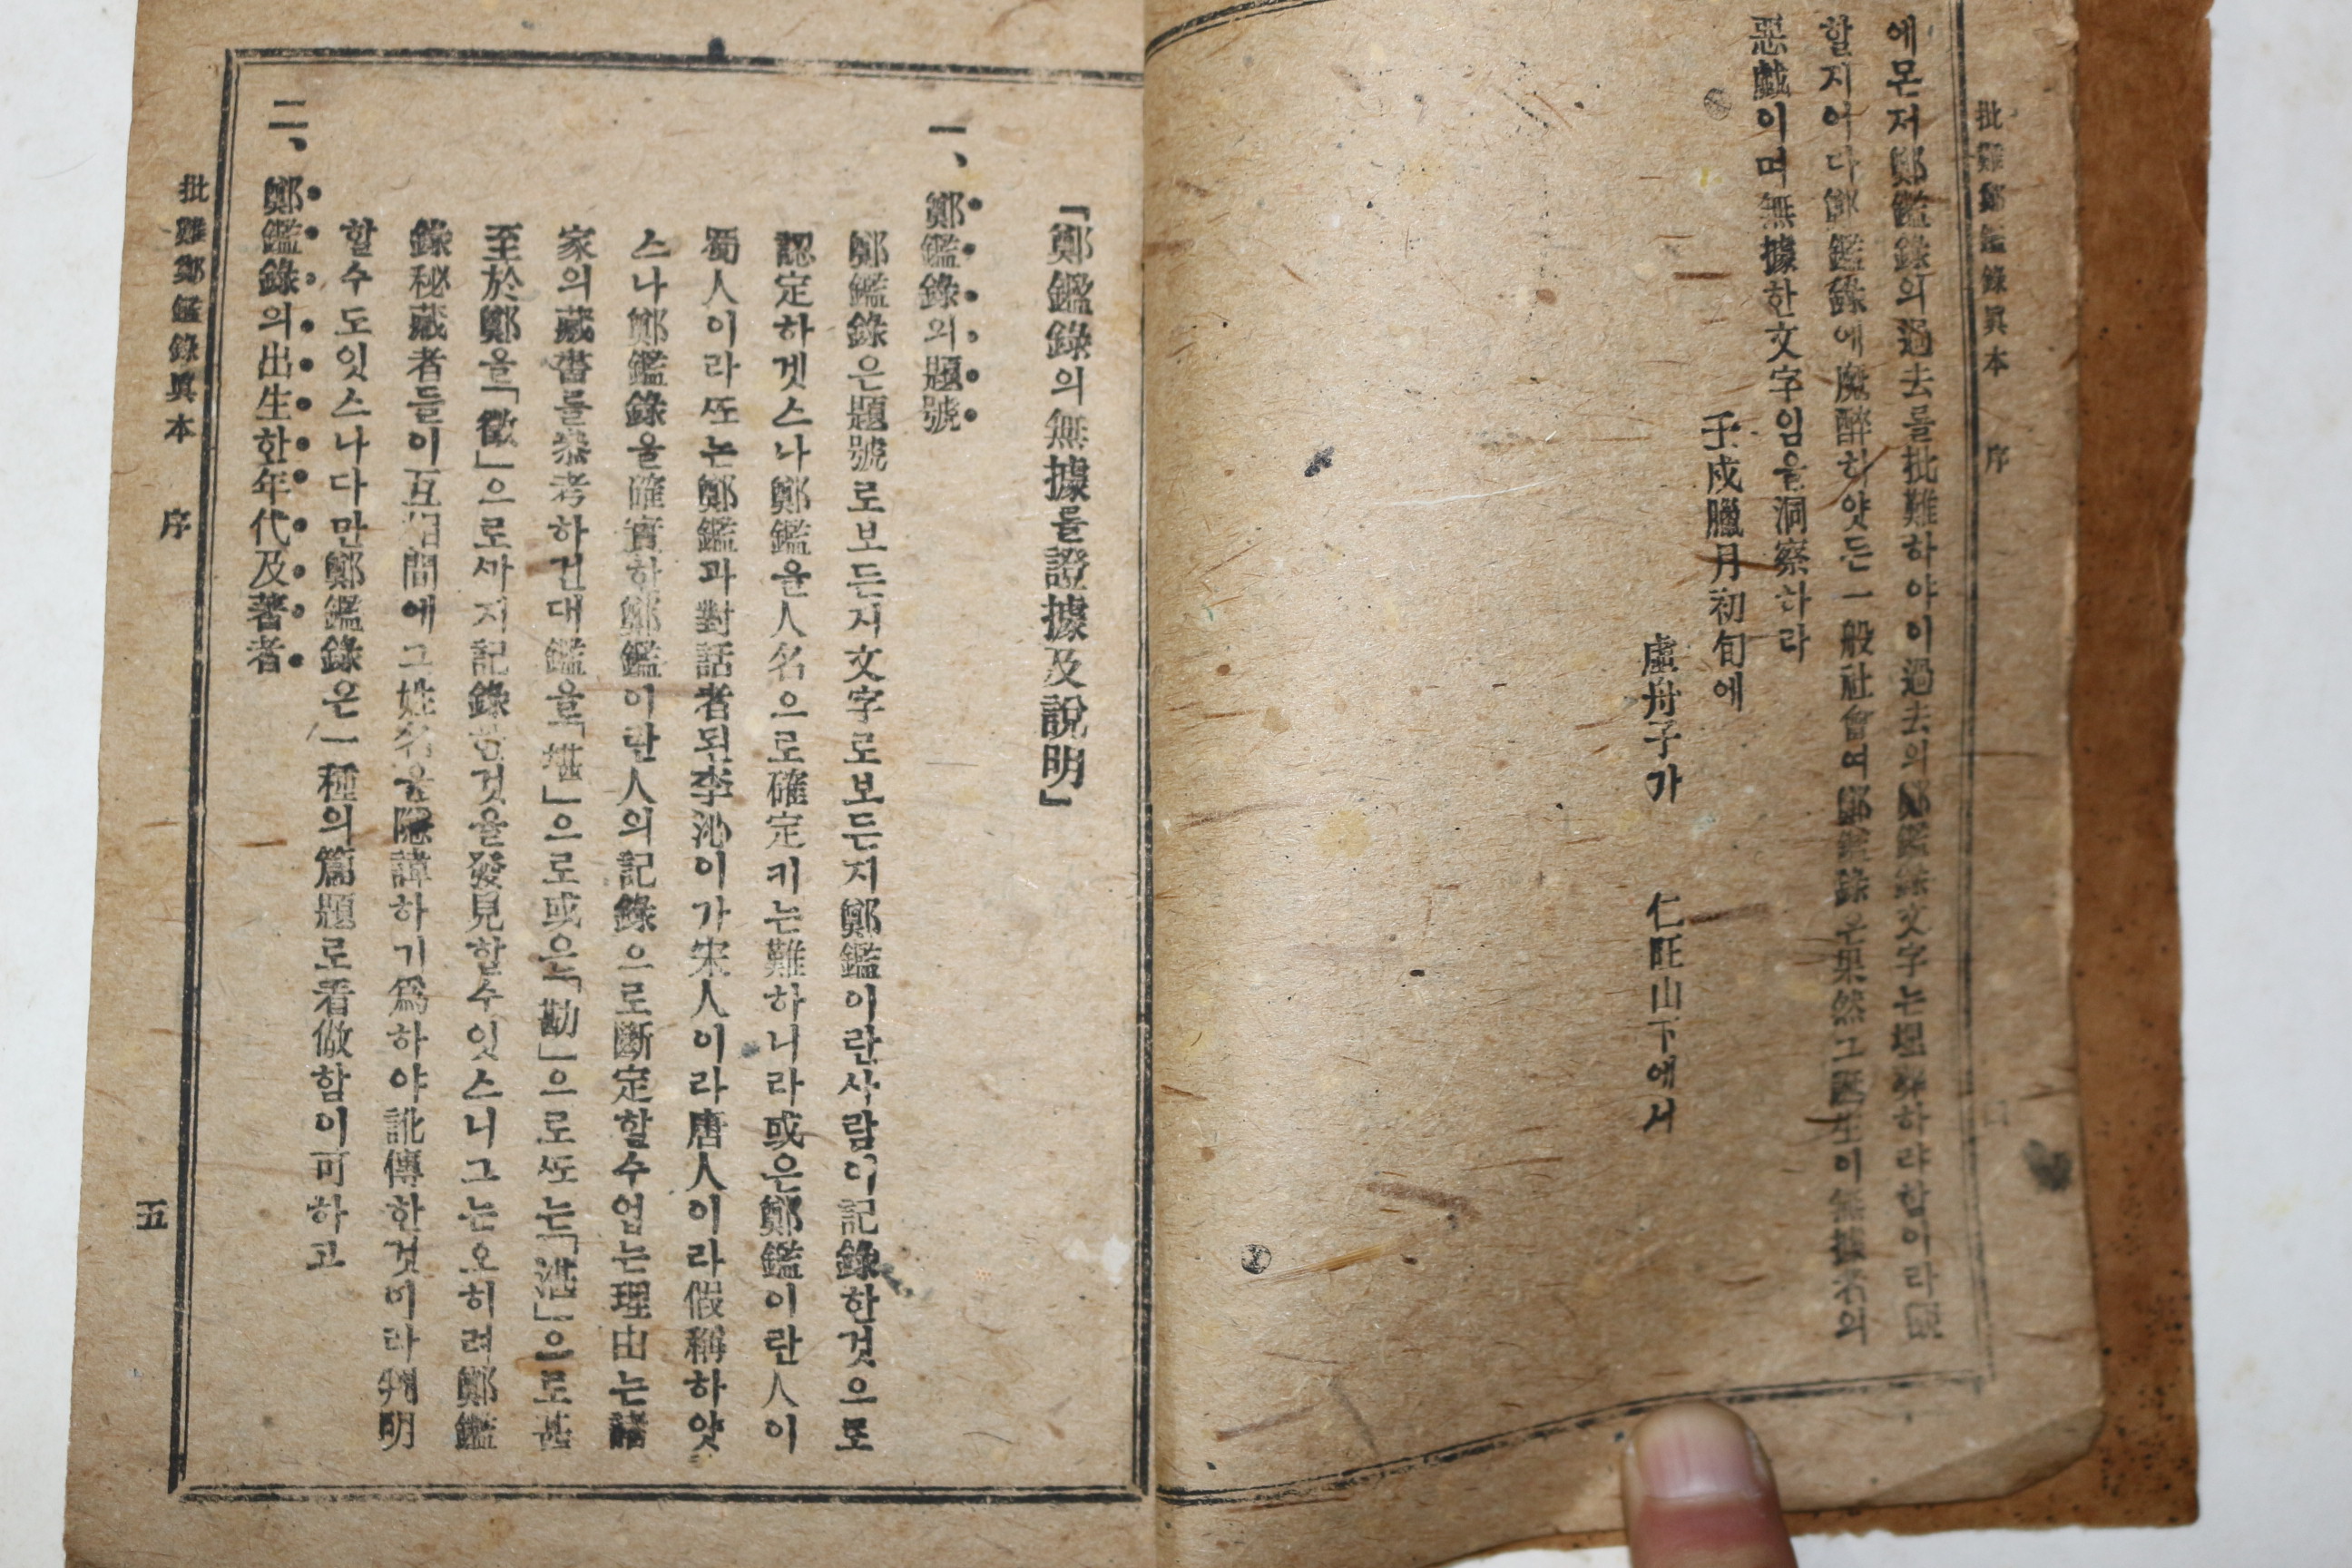 批難鄭鑑錄眞本 序
에몬저鄭鑑錄의過去를批難하야이過去의鄭鑑錄文字는埋葬하랴함이라
할지어다鄭鑑錄에魔醉하얏든一般社會여鄭鑑錄은果然그 이無據者의
惡戱이며無據한文字임을洞察하라
壬戌臘月初旬에
虛舟子가 仁旺山下에서
「鄭鑑錄의無據를證據及說明」
一、鄭鑑錄의題號
鄭鑑錄은題號로보든지文字로보든지鄭鑑이란사람이記錄한것으로
認定하겟스나鄭鑑은人名으로確定키는難하니라或은鄭鑑이란人이
蜀人이라ᄯᅩ는鄭鑑과對話者된李沁이가宋人이라唐人이라假稱하얏
스나鄭鑑錄을確實한鄭鑑이란人의記錄으로斷定할수업는理由는諸
家의藏書를叅考하건대鑑을「堪」으로或은「勘」으로ᄯᅩ는「湛」으로甚
至於鄭을「徵」으로ᄭᅡ지記錄한것을發見할수잇스니그는오히려鄭鑑
錄秘藏者들이互相間에그姓名을隱諱하기爲하야訛傳한것이라判明
할수도잇스나다만鄭鑑錄은一種의篇題로看做함이可하고
二、鄭鑑錄의出生한年代及著者
批難鄭鑑錄眞本 序 五